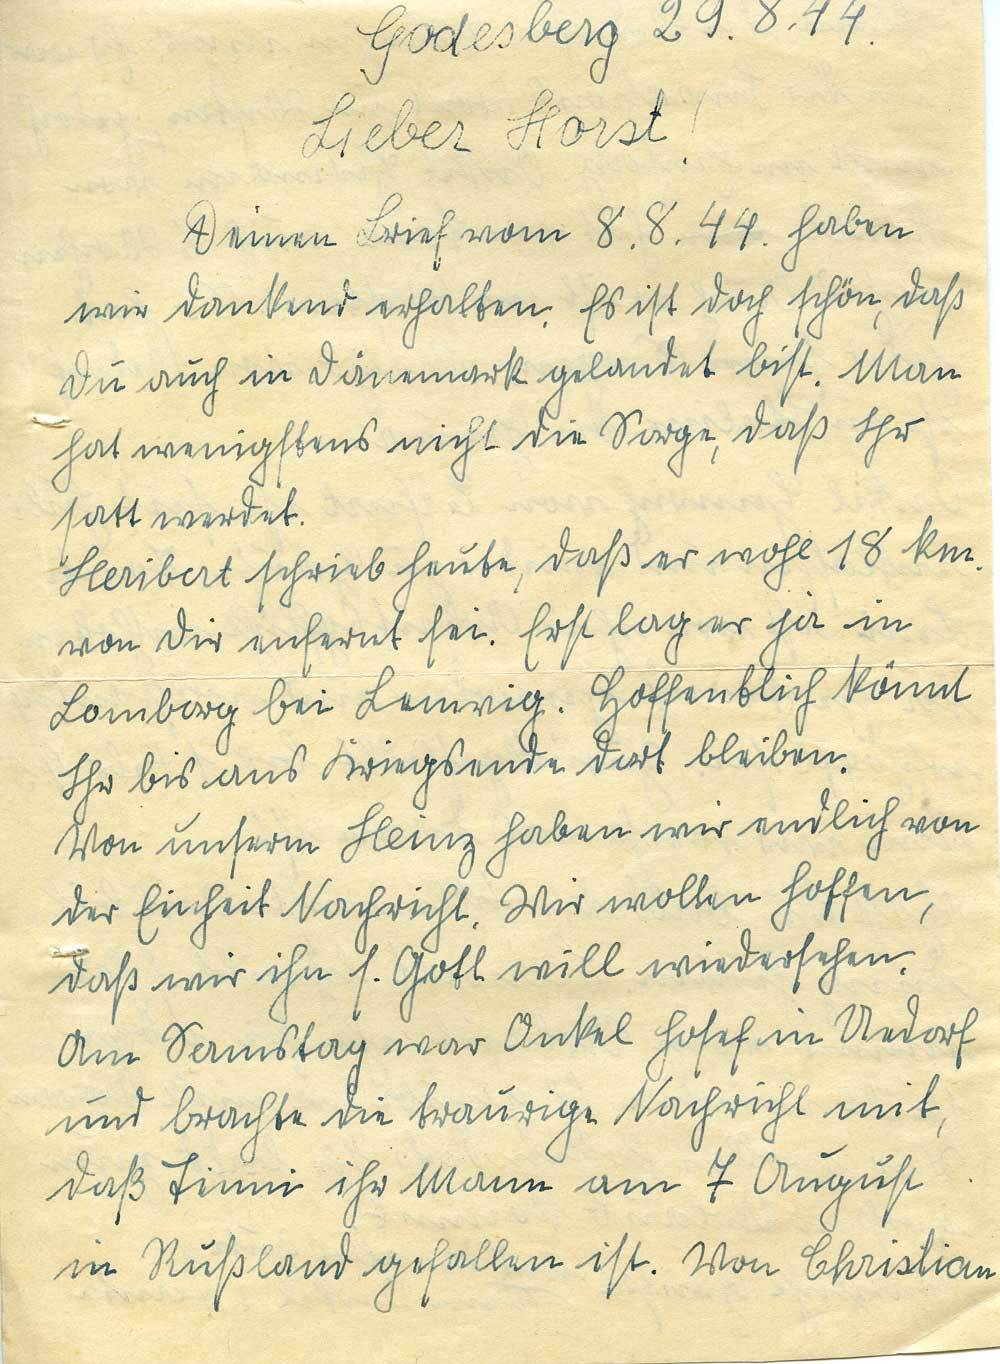 Godesberg 29.8.44.
Lieber Horst!
Deinen Brief vom 8.8.44. haben
wir dankend erhalten. Es ist doch schön, daß
Du auch in Dänemark gelandet bist. Man
hat wenigstens nicht die Sorge, daß Ihr
satt werdet.
Heribert schrieb heute, daß er wohl 18 km.
von Dir enfernt sei. Erst lag er ja in
Lomborg bei Lemvig. Hoffentlich könnt
Ihr bis ans Kriegsende dort bleiben.
Von unserm Heinz haben wir endlich von
der Einheit Nachricht. Wir wollen hoffen,
daß wir ihn s. Gott will wiedersehen.
Am Samstag war Onkel Josef in Uedorf
und brachte die traurige Nachricht mit,
daß Tinni ihr Mann am 7 August
in Rußland gefallen ist. Von Christian